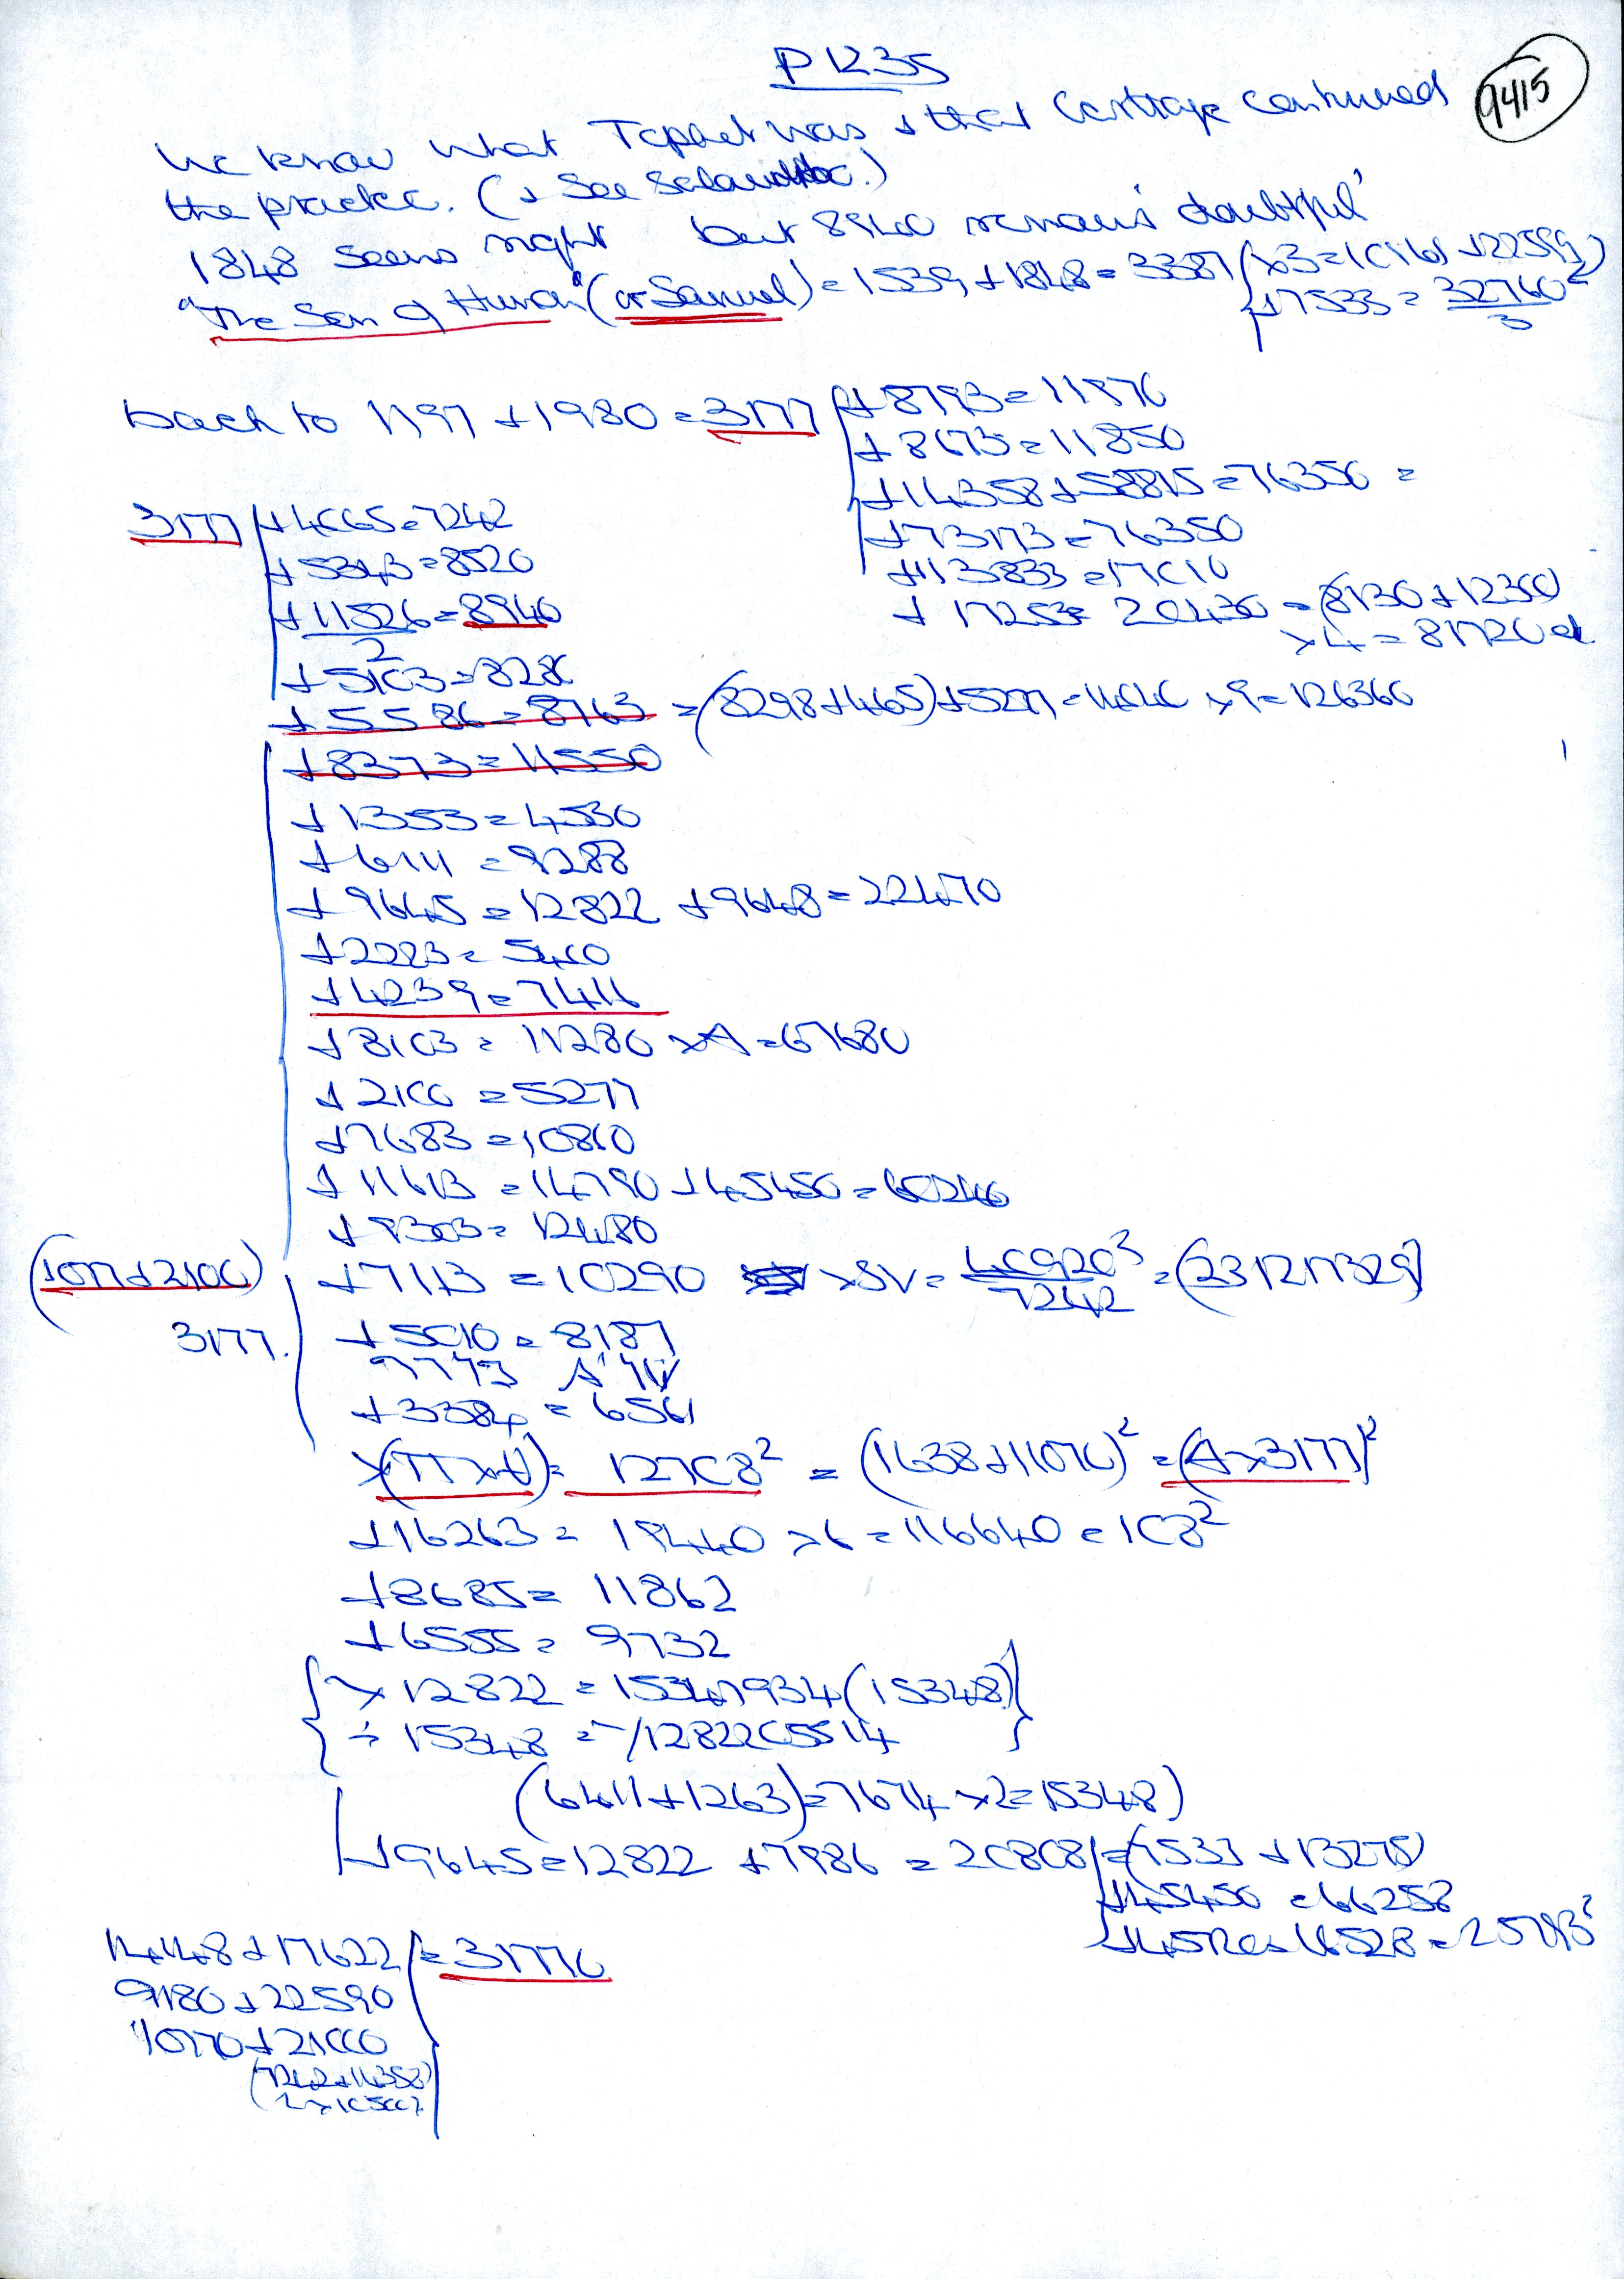 P1235
9415
We know what Tophet was & that Carthage continued
the practice. (& see Salambo.)
1848 seems right but 8940 remains 'doubtful'
"The Son of Huran" (or Samuel) = 1539 + 1848 = 3387 (x3 = 10161 + 22599)
+ 7533 = 32760² / 3
back to 1197 + 1980 = 3177
+ 8793 = 11970
+ 8673 = 11850
+ 14358 + 58815 = 76350 =
+ 73173 = 76350
+ 13833 = 17010
+ 17253 = 20430 = (8130 + 12300)
x 4 = 81720
3177 + 4065 = 7242
+ 5343 = 8520
+ 11526 / 2 = 8940
+ 5103 = 8280
+ 5586 = 8763 = (8298 + 465) + 5277 = 14040 x 9 = 126360
+ 8373 = 11550
+ 1353 = 4530
+ 6111 = 9288
+ 9645 = 12822 + 9648 = 22470
+ 2223 = 5400
+ 4239 = 7416
+ 8103 = 11280 x A = 67680
+ 2100 = 5277
+ 7683 = 10860
+ 11613 = 14790 + 45450 = 60240
+ 9303 = 12480
(1077 + 2100) + 7113 = 10290 x SV = 40920³ / 7242 = (231217329)
3177. + 5010 = 8187
9773
+ 3384 = 6561
x (TT x A) = 12708² = (1638 + 11070)² = (A x 3177)²
+ 16263 = 19440 x 6 = 116640 = 108²
+ 8685 = 11862
+ 6555 = 9732
x 12822 = 15347934 (15348)
÷ 15348 = -/1282205514
(6411 + 1263) = 7674 x 2 = 15348)
+ 9645 = 12822 + 7986 = 20808 = (7533 + 13275)
+ 45450 = 66258
= 25793²
14148 + 17622 = 31770
9180 + 22590
10770 + 21000
(7242 + 14358)